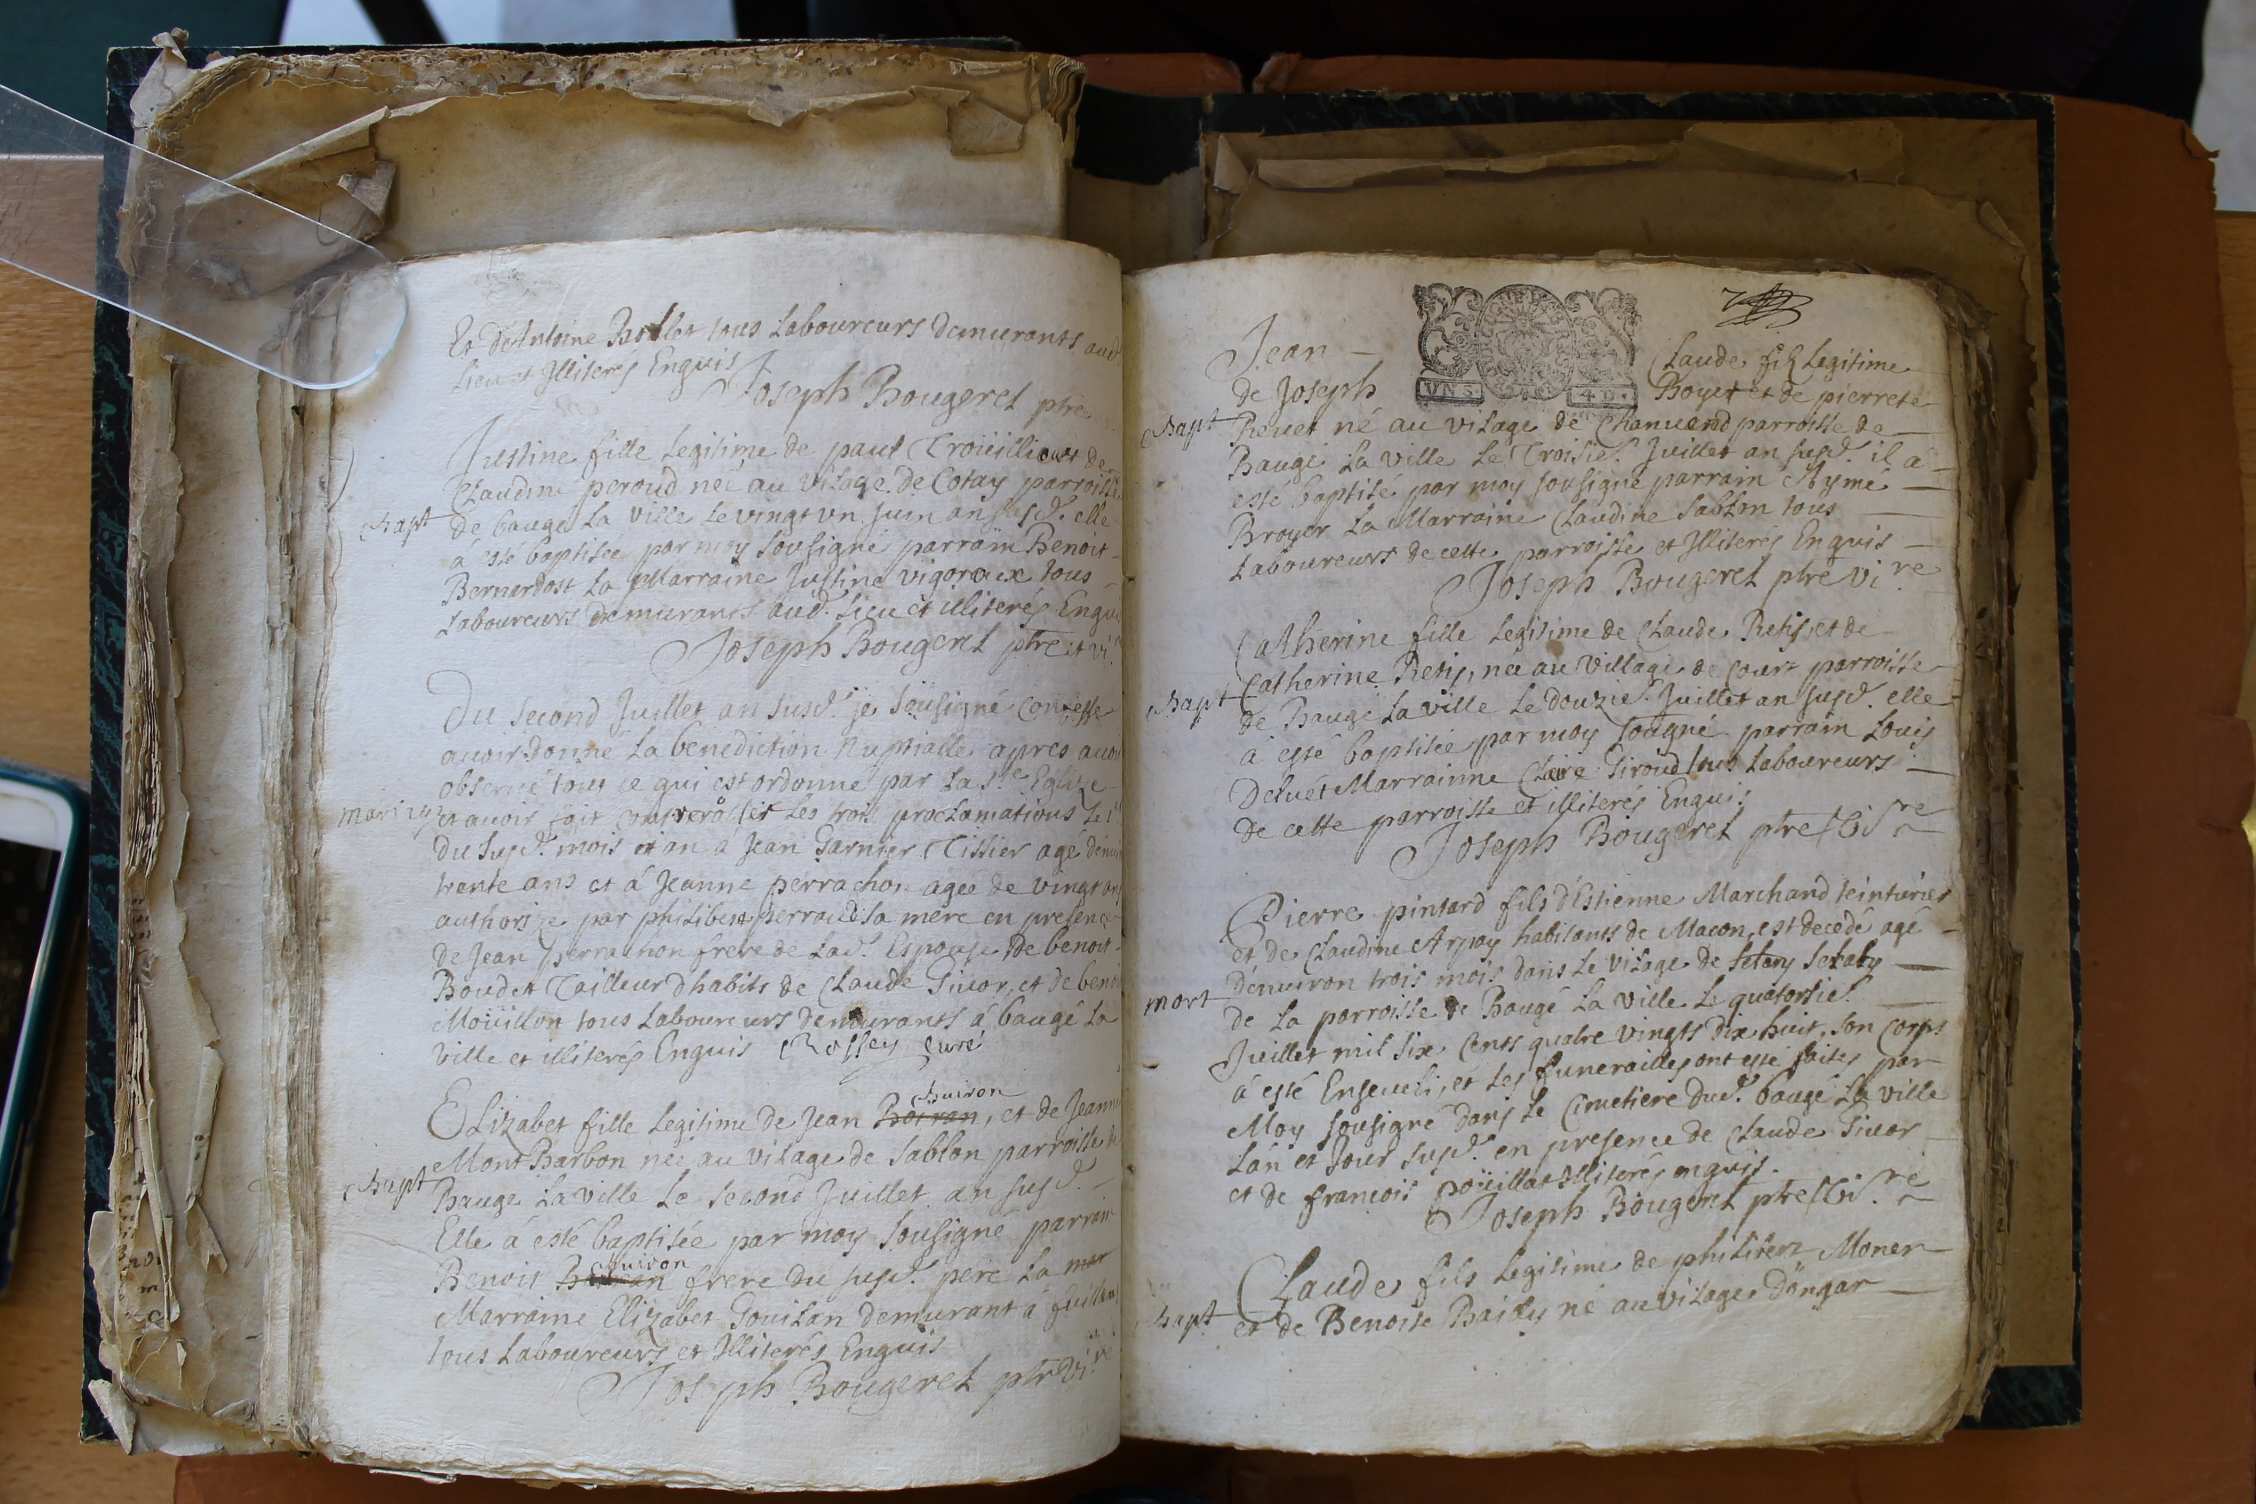 Et de Antoine Bollet tous Laboureurs demurants aud.
Lieu et Illiterés Enquis
Joseph Bougeret ptre
Justine fille Legitime de paul Troüillioux et de
Claudine peroud neé au vilage de Cotay parroisse
Bapt de baugé La ville Le vingt vn Juin an susd. elle
á esté baptisée par moy sousigné parrain Benoit
Bernardost La Marraine Justine vigoroux tous
Laboureurs demurants aud. Lieu et illiterés Enquis
Joseph Bougeret ptre et vi.
Du second Juillet an susd. je soüsigné confesse
avoir donné La benediction Nuptialle apres avoir
observé tout ce qui est ordonné par La Ste Eglize
mariage et avoir fait les trois proclamations Le
du susd. mois et an á Jean Garnier Tissier agé denviron
trente ans et á Jeanne perrachon ageé de vingt ans
authorizé par philibert perraud sa mere en presence
de Jean perrachon frere de Lad. Espouse de benoit
Boudet Tailleur dhabits de Claude Givor, et de benoit
Moüillon tous Laboureurs demourants á baugé La
ville et illiterés Enquis Rossey curé
Buiron
Elizabet fille Legitime de Jean Botran, et de Jeanne
Mont Barbon neé au vilage de Sablon parroisse de
Bapt Baugé La ville Le second Juillet an susd.
Elle á esté baptisée par moy sousigné parrain
Buiron
Benoit frere du susd. pere La mar
Marraine Elizabet Gouilan demurant á
tous Laboureurs et Illiterés Enquis
Joseph Bougeret ptre Vi.re
VN S. 4 D.
Jean Claude fils Legitime
de Joseph Boyer et de pierrete
Bapt Revet né au vilage de Chanuend parroisse de
Baugé La ville Le Troisie. Juillet an susd. il á
esté baptisé par moy sousigné parrain Aymé
Broyer La Marraine Claudine Sablon tous
Laboureurs de cette parroisse et Illiterés Enquis
Joseph Bougeret ptre vi.re
Catherine fille Legitime de Claude Retis, et de
Catherine Retis, neé au village de Court parroisse
Bapt de Baugé La ville Le douzie. Juillet an susd. elle
á esté baptisée par moy sougné parrain Louis
Deluet Marrainne Claire Giroud tous Laboureurs
de cette parroisse et illiterés Enquis
Joseph Bougeret ptre Vi.re
Pierre pintard fils d'Estienne Marchand teinturier
et de Claudine Arpay habitants de Macon, est decedé agé
d'enuiron trois mois dans Le vilage de
mort de La parroisse de Baugé La ville Le quatorsie.
Juillet mil six cents quatre vingts dix huit, son corps
á esté Enseueli, et Les funerailles ont esté faites par
Moy sousigné dans Le Cimetiere dud. baugé La ville
L'án et Jour susd. en presence de Claude Givor
et de françois poüillat illiterés enquis.
Joseph Bougeret ptre Vi.re
Claude fils Legitime de philibert Moner
Bapt et de Benoite Baidy né au vilage D'ongar